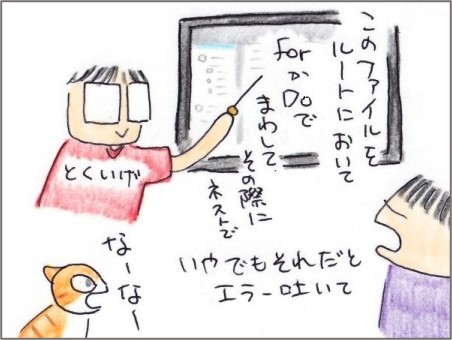 このファイルを
ルートにおいて
forかDoで
まわして
その際に
ネストで
とくいげ
いやでもそれだと
エラー吐いて
なーなー